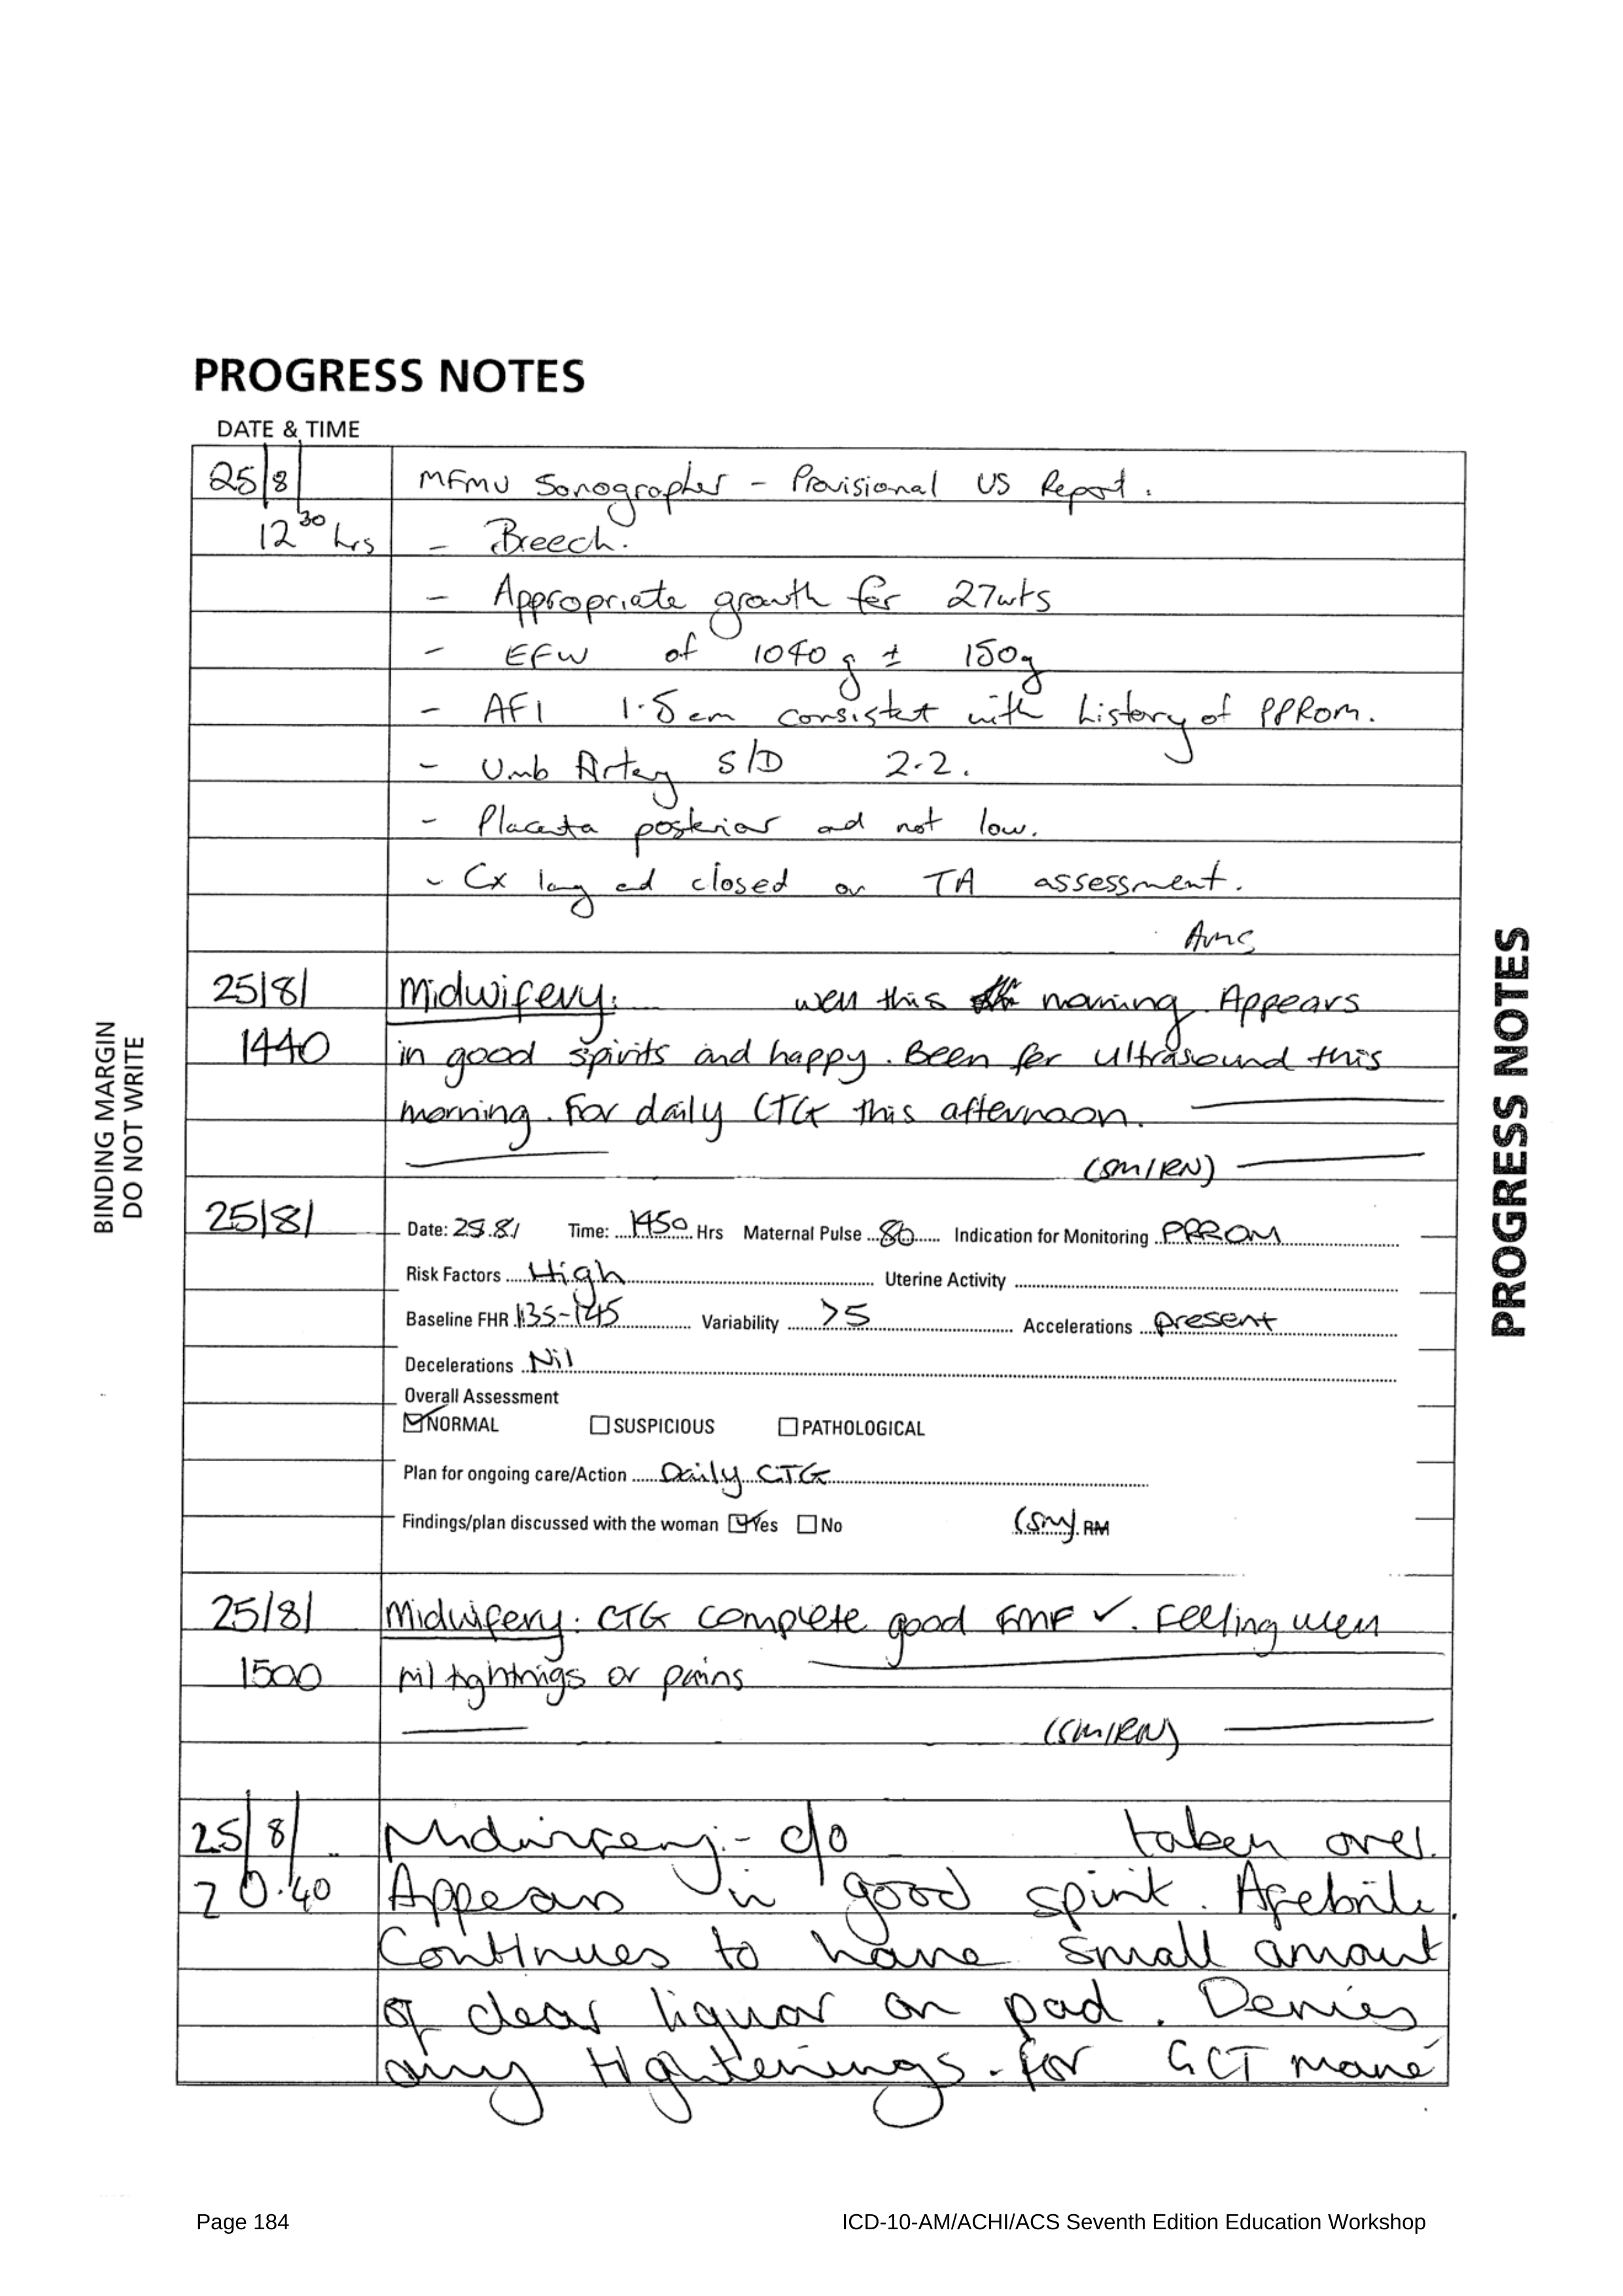 PROGRESS NOTES
DATE & TIME
25/8/ MFMU Sonographer - Provisional US Report.
12 30 hrs - Breech.
- Appropriate growth for 27wks
- EFW of 1040g ± 150g
- AFI 1.8cm consistent with history of PPROM.
- Umb Artery S/D 2.2.
- Placenta posterior and not low.
- Cx long and closed on TA assessment.
25/8/ Midwifery: well this morning. Appears
1440 in good spirits and happy. Been for ultrasound this
morning. For daily CTG this afternoon.
(SM/RN)
25/8/ Date: 25.8/ Time: 1450 Hrs Maternal Pulse 80 Indication for Monitoring PPROM
Risk Factors High Uterine Activity
Baseline FHR 135-145 Variability >5 Accelerations present
Decelerations Nil
Overall Assessment
☑ NORMAL ☐ SUSPICIOUS ☐ PATHOLOGICAL
Plan for ongoing care/Action Daily CTG
Findings/plan discussed with the woman ☑ Yes ☐ No (SM) RM
25/8/ Midwifery: CTG complete good FMF ✓. Feeling well
1500 nil tightnigs or pains
(SM/RN)
25/8/ Midwifery:- c/o taken over.
20.40 Appears in good spirit. Afebrile.
Continues to have small amount
of clear liquor on pad. Denies
any tightenings. for GCT mané
BINDING MARGIN
DO NOT WRITE
PROGRESS NOTES
Page 184 ICD-10-AM/ACHI/ACS Seventh Edition Education Workshop